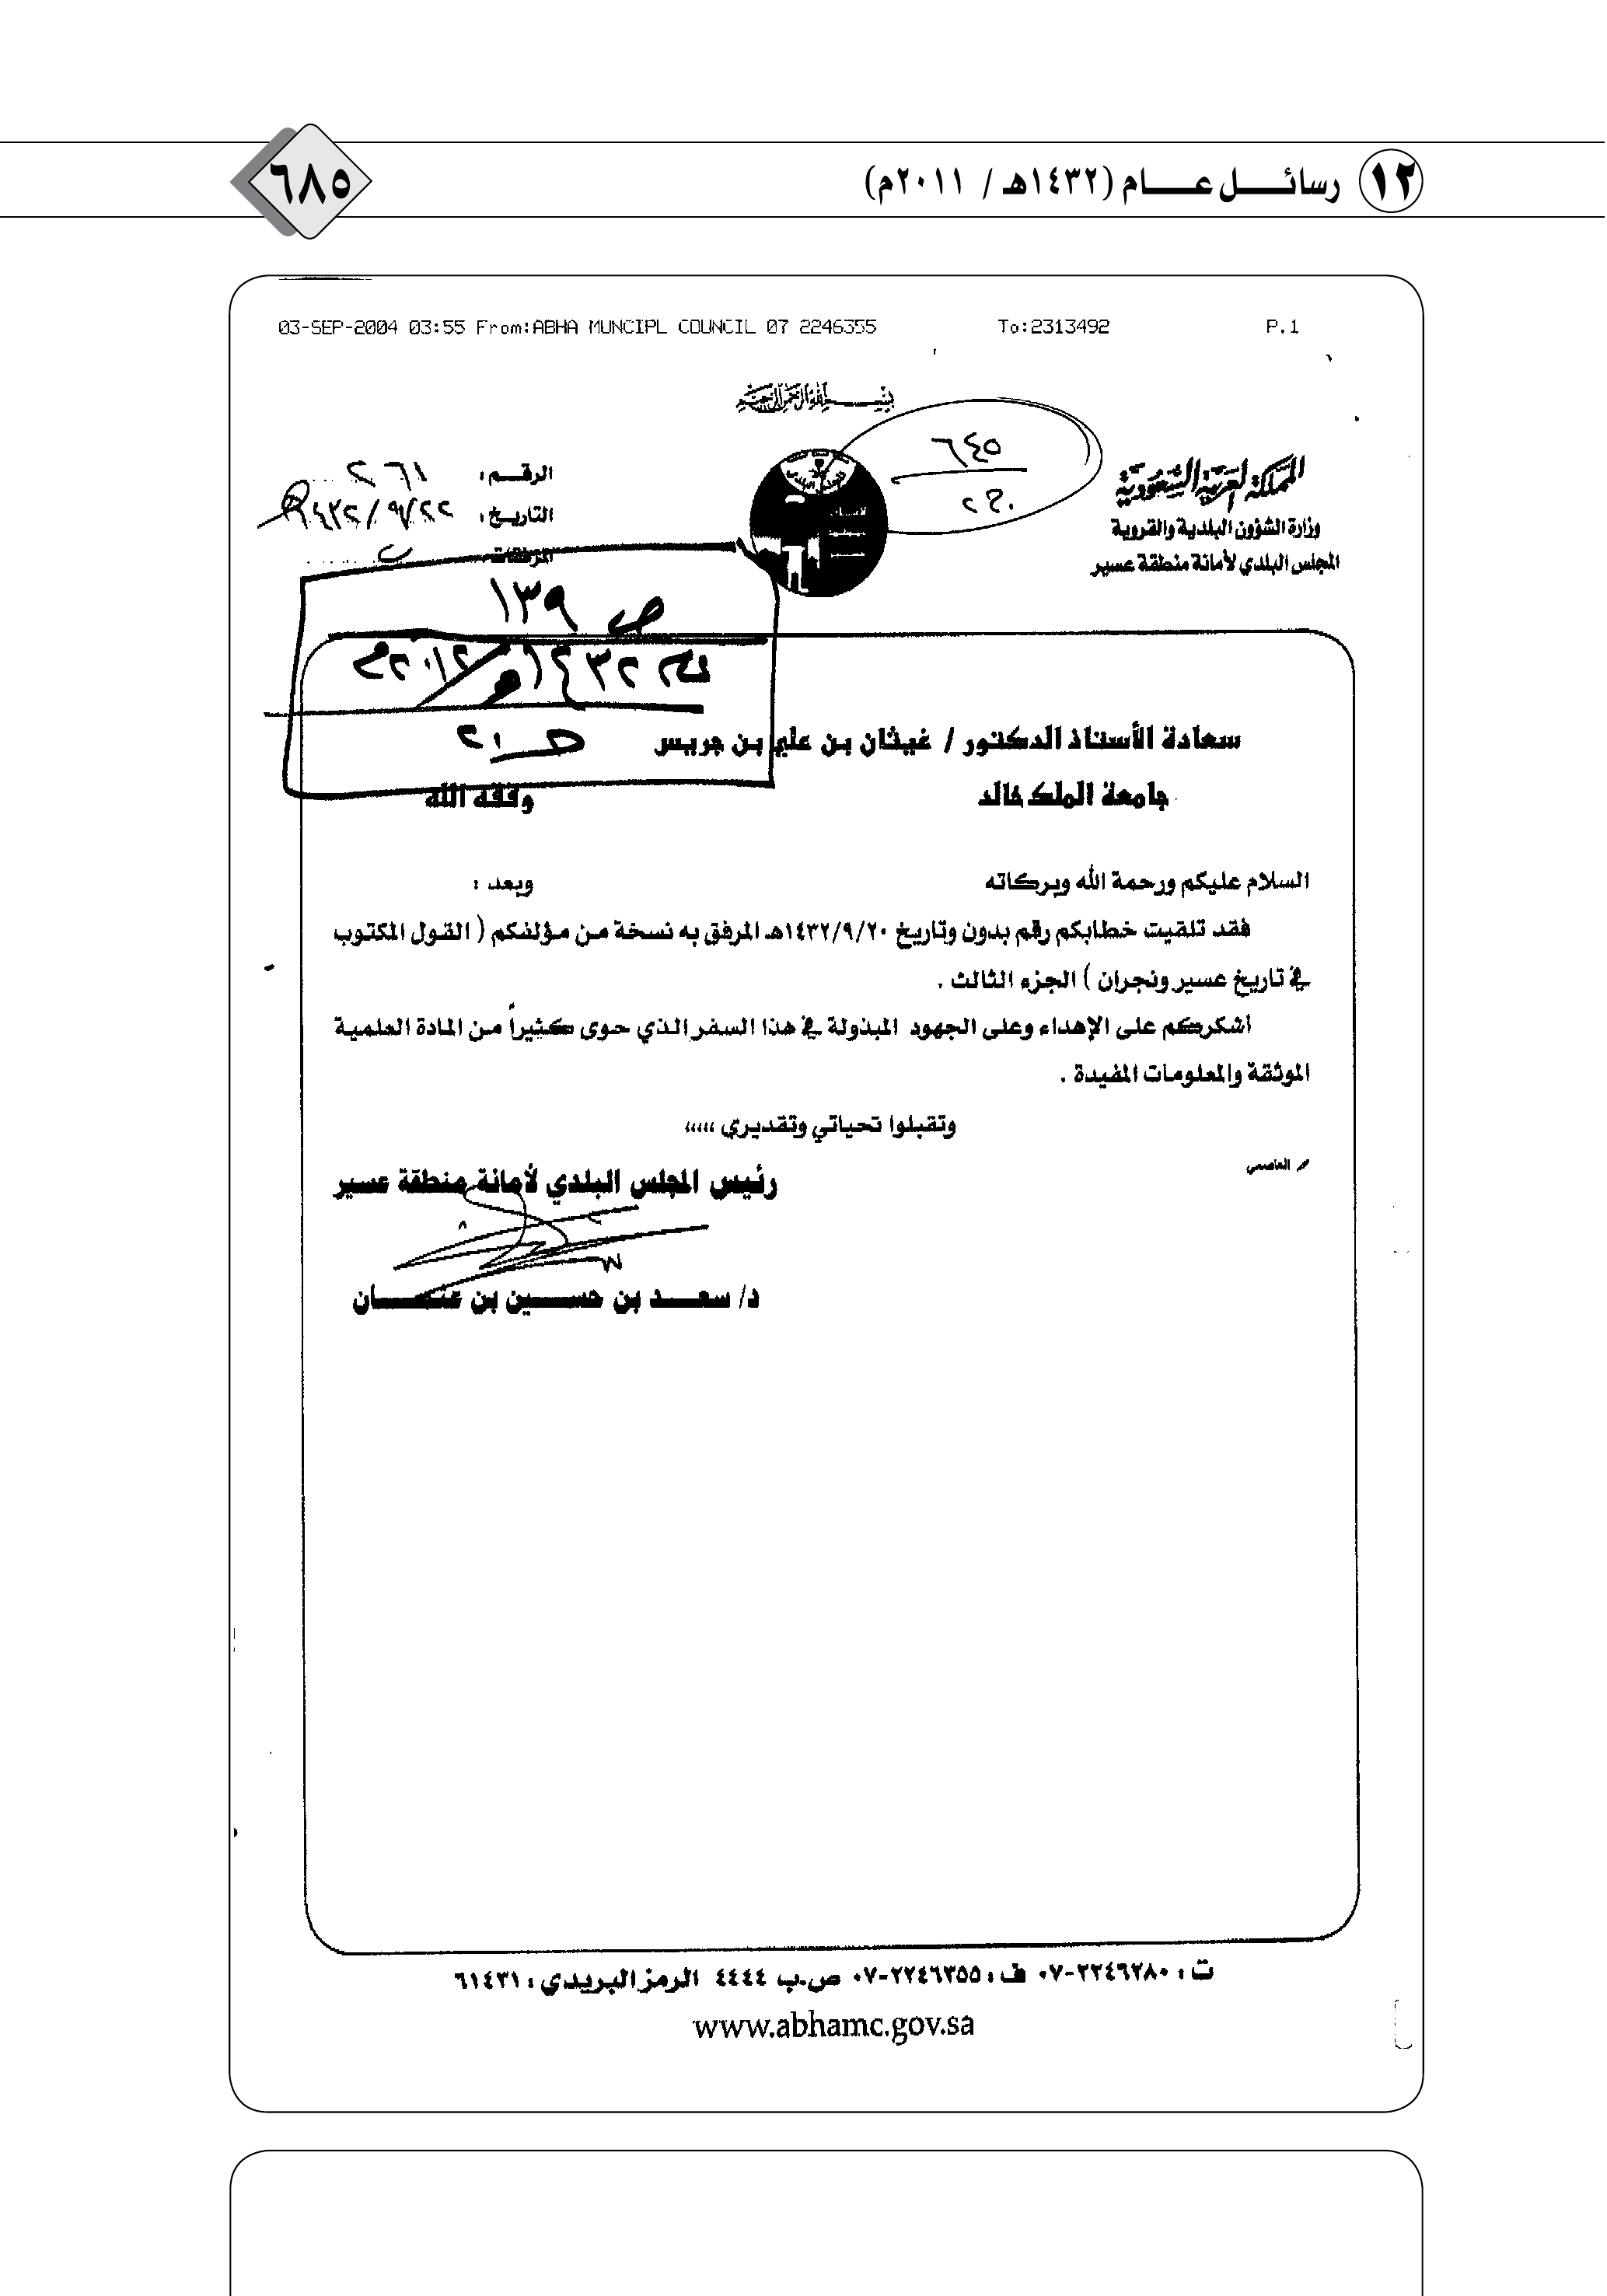 ١٢ رسائـــل عـــام (١٤٣٢هـ / ٢٠١١م)
٦٨٥
03-SEP-2004 03:55 From:ABHA MUNCIPL COUNCIL 07 2246355 To:2313492 P.1
بسم الله الرحمن الرحيم
المملكة العربية السعودية
وزارة الشؤون البلدية والقروية
المجلس البلدي لأمانة منطقة عسير
٦٤٥
الرقـــم : ٢٦١
التاريـخ : ١٤٣٢/٩/٢٢
المرفقات :
ص ١٣٩
١٤٣٢هـ/٢٠١٢م
سعادة الأستاذ الدكتور / غيثان بن علي بن جريس
جامعة الملك خالد وفقه الله
السلام عليكم ورحمة الله وبركاته وبعد :
فقد تلقيت خطابكم رقم بدون وتاريخ ١٤٣٢/٩/٢٠هـ المرفق به نسخة من مؤلفكم ( القول المكتوب
في تاريخ عسير ونجران ) الجزء الثالث .
أشكركم على الإهداء وعلى الجهود المبذولة في هذا السفر الذي حوى كثيراً من المادة العلمية
الموثقة والمعلومات المفيدة .
وتقبلوا تحياتي وتقديري ،،،،،
العاصمي
رئيس المجلس البلدي لأمانة منطقة عسير
د/ سعـــد بن حســـين بن عثمـــان
ت : ٢٢٤٦٢٨٠-٠٧ ف : ٢٢٤٦٣٥٥-٠٧ ص.ب ٤٤٤٤ الرمز البريدي : ٦١٤٣١
www.abhamc.gov.sa